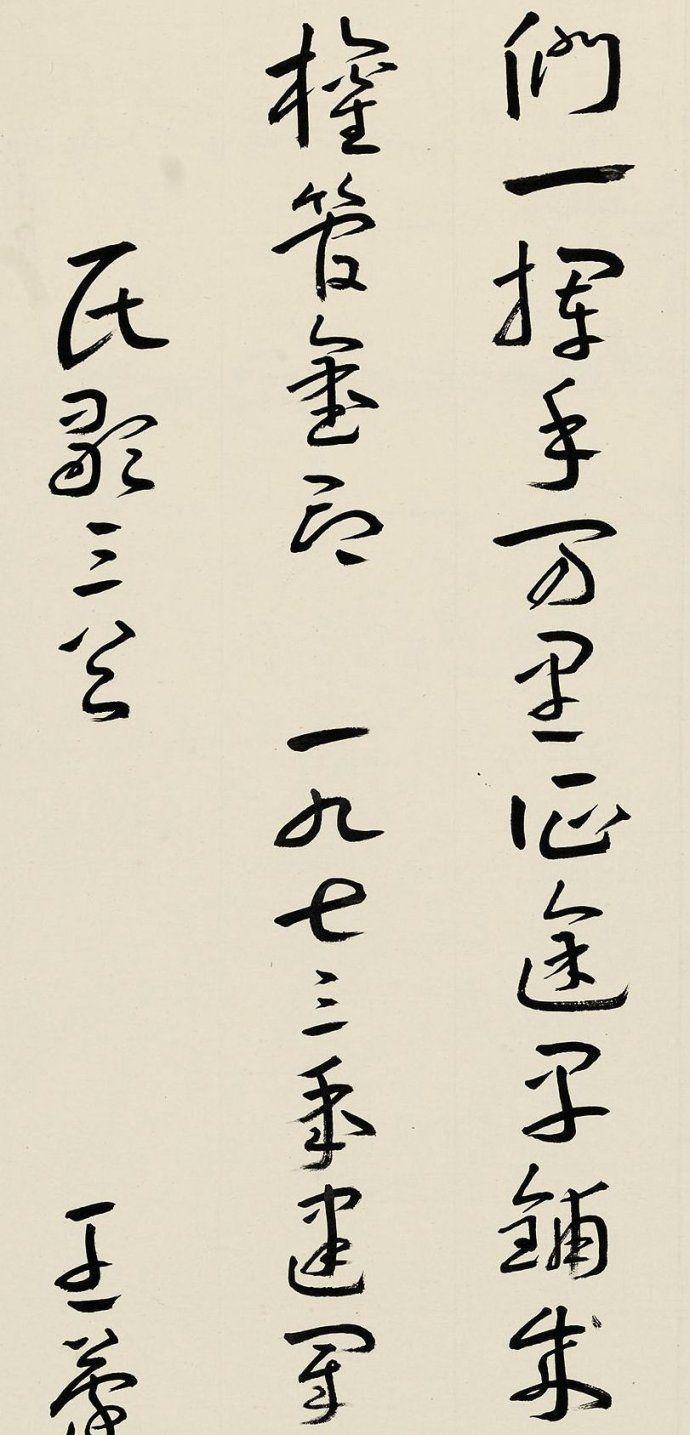 們一揮手万里征途早鋪成
權管金印 一九七三年建軍
民歌三首 王